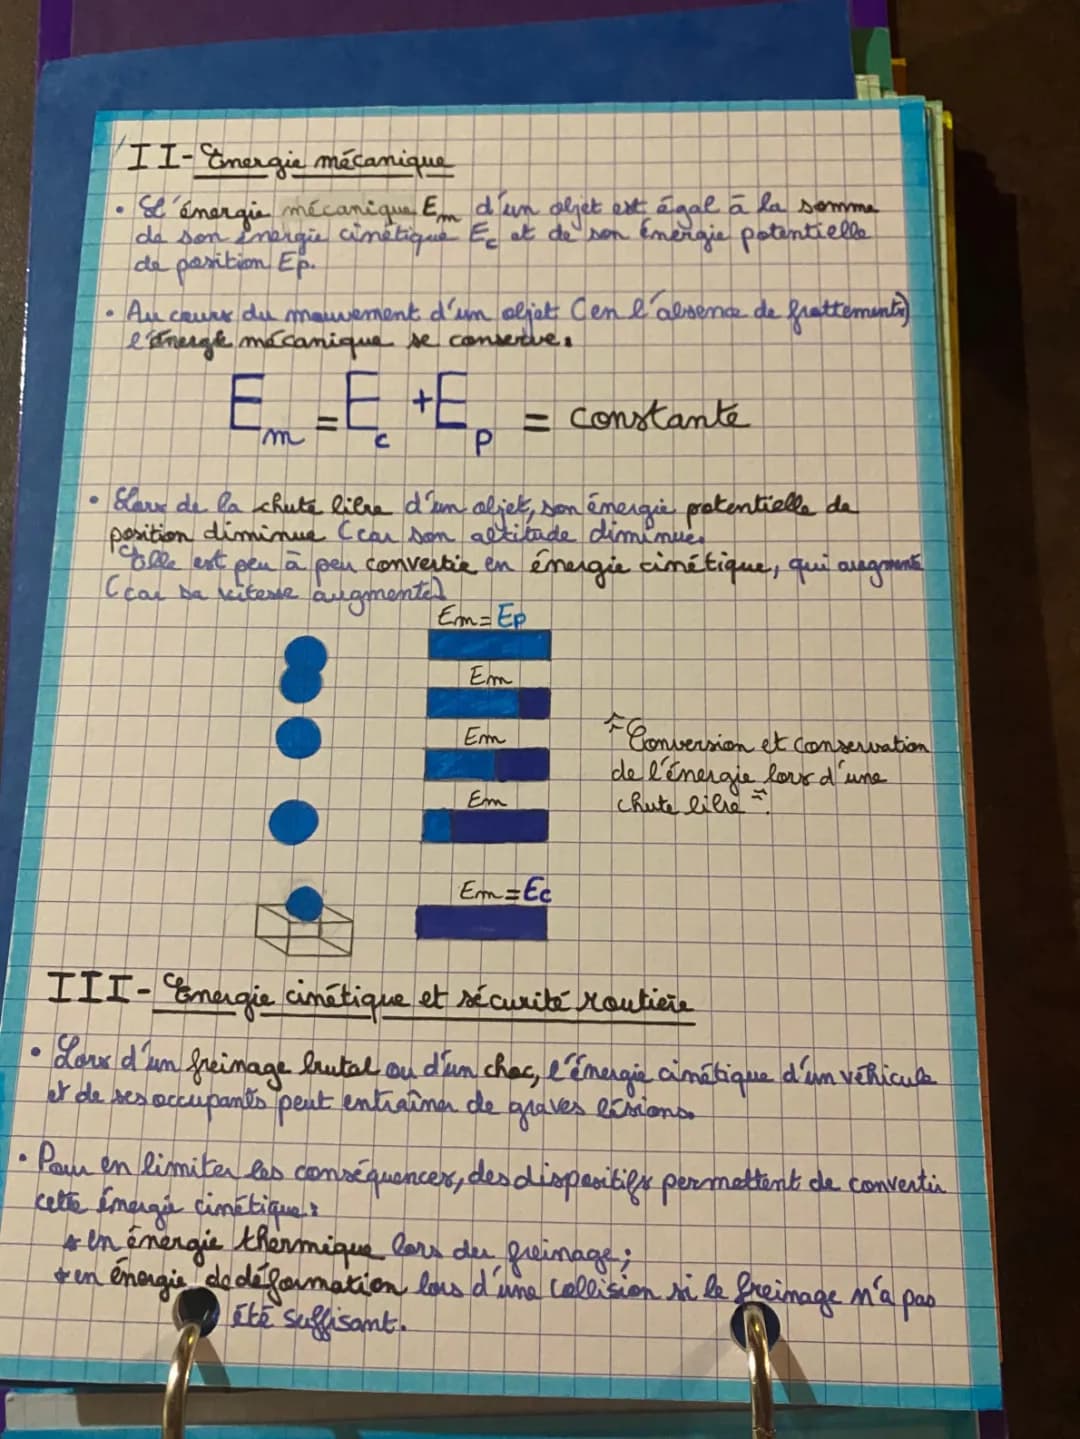 II- Énergie mécanique
• L'énergie mécanique Em d'un objet est égal à la somme
de son énergie cinétique Ec et de son énergie potentielle
de position Ep.
• Au cours du mouvement d'un objet (en l'absence de frottements)
l'énergie mécanique se conserve.
Em = Ec + Ep = constante
• Lors de la chute libre d'un objet, son énergie potentielle de
position diminue (car son altitude diminue.
Elle est peu à peu convertie en énergie cinétique, qui augmente
(car sa vitesse augmente)
Em = Ep
Em
Em
Em
Em = Ec
"Conversion et conservation
de l'énergie lors d'une
chute libre".
III- Énergie cinétique et sécurité routière
• Lors d'un freinage brutal ou d'un choc, l'énergie cinétique d'un véhicule
et de ses occupants peut entraîner de graves lésions.
• Pour en limiter les conséquences, des dispositifs permettent de convertir
cette énergie cinétique:
* en énergie thermique lors du freinage;
* en énergie de déformation lors d'une collision si le freinage n'a pas
été suffisant.